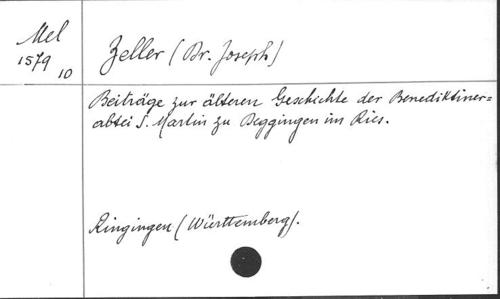 Mel
1579
10
Zeller (Dr. Joseph)
Beiträge zur älteren Geschichte der Benediktiner=
abtei S. Martin zu Deggingen im Ries.
Ringingen (Württemberg).